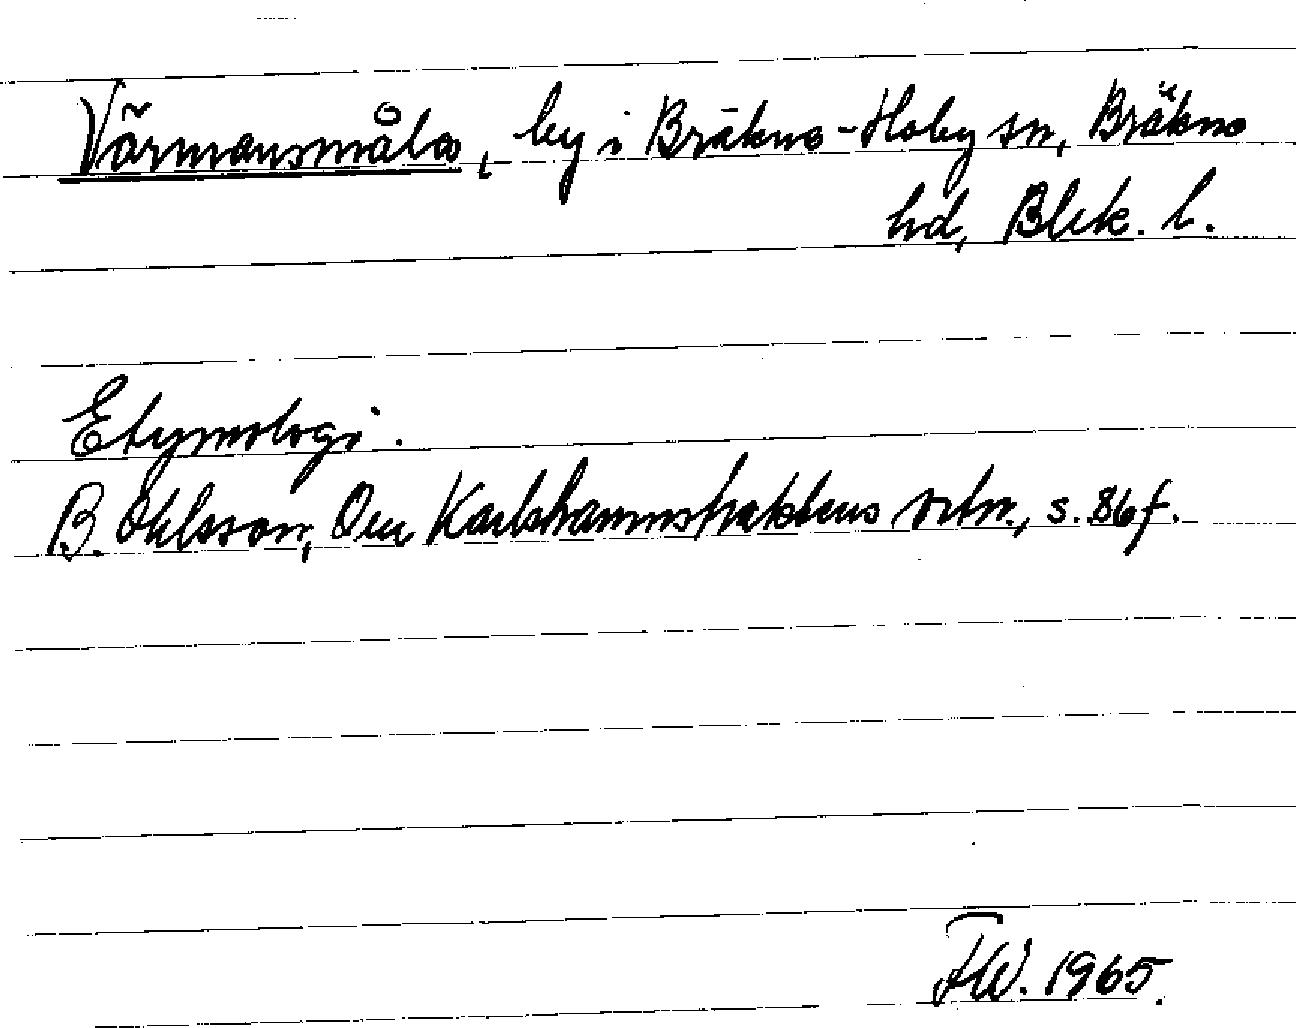 Värmansmåla, by i Bräkne-Hoby sn, Bräkne
hd, Blek. l.
Etymologi.
B. Ohlsson, Om Karlshamnstraktens ortn., s. 86 f.
FW. 1965.